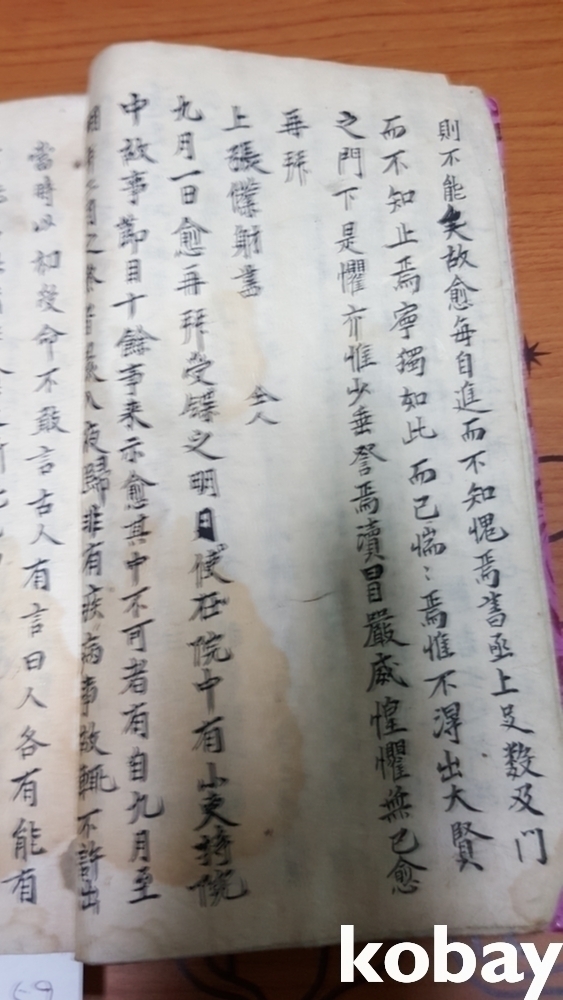 則不能矣故愈每自進而不知愧焉書亟上足数及門
而不知止焉寧獨如此而已惴〻焉惟不淂出大賢
之門下是懼亦惟少垂詧焉瀆冒嚴威惶懼無已愈
再拜
上張僕射書 仝人
九月一日愈再拜受牒之明日使在院中有小吏持院
中故事節目十餘事来示愈其中不可者有自九月至
之 入夜歸非有疾病事故輒不許出
當時以初受命不敢言古人有言曰人各有能有
kobay